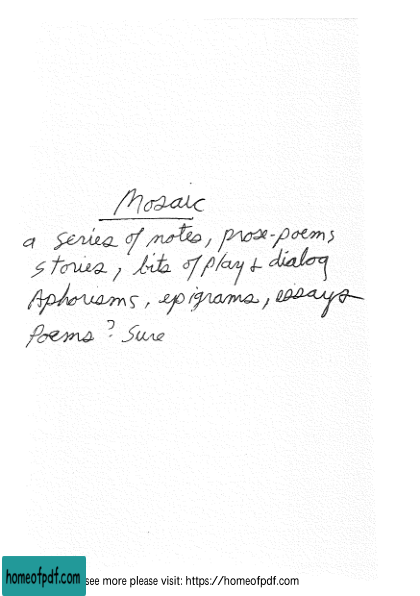 Mosaic
a series of notes, prose-poems
stories, bits of play & dialog
Aphorisms, epigrams, essays
Poems? Sure
homeofpdf.com
see more please visit: https://homeofpdf.com